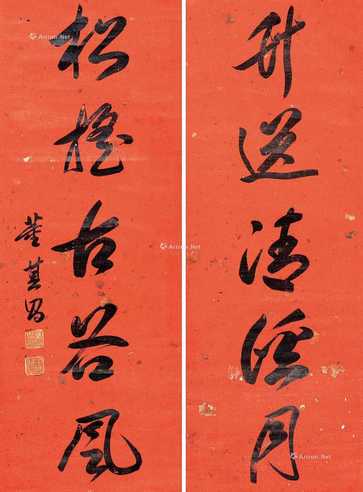 竹送清溪月
松搖古谷風
董其昌
Artron.Net
Artron.Net
Artron.Net